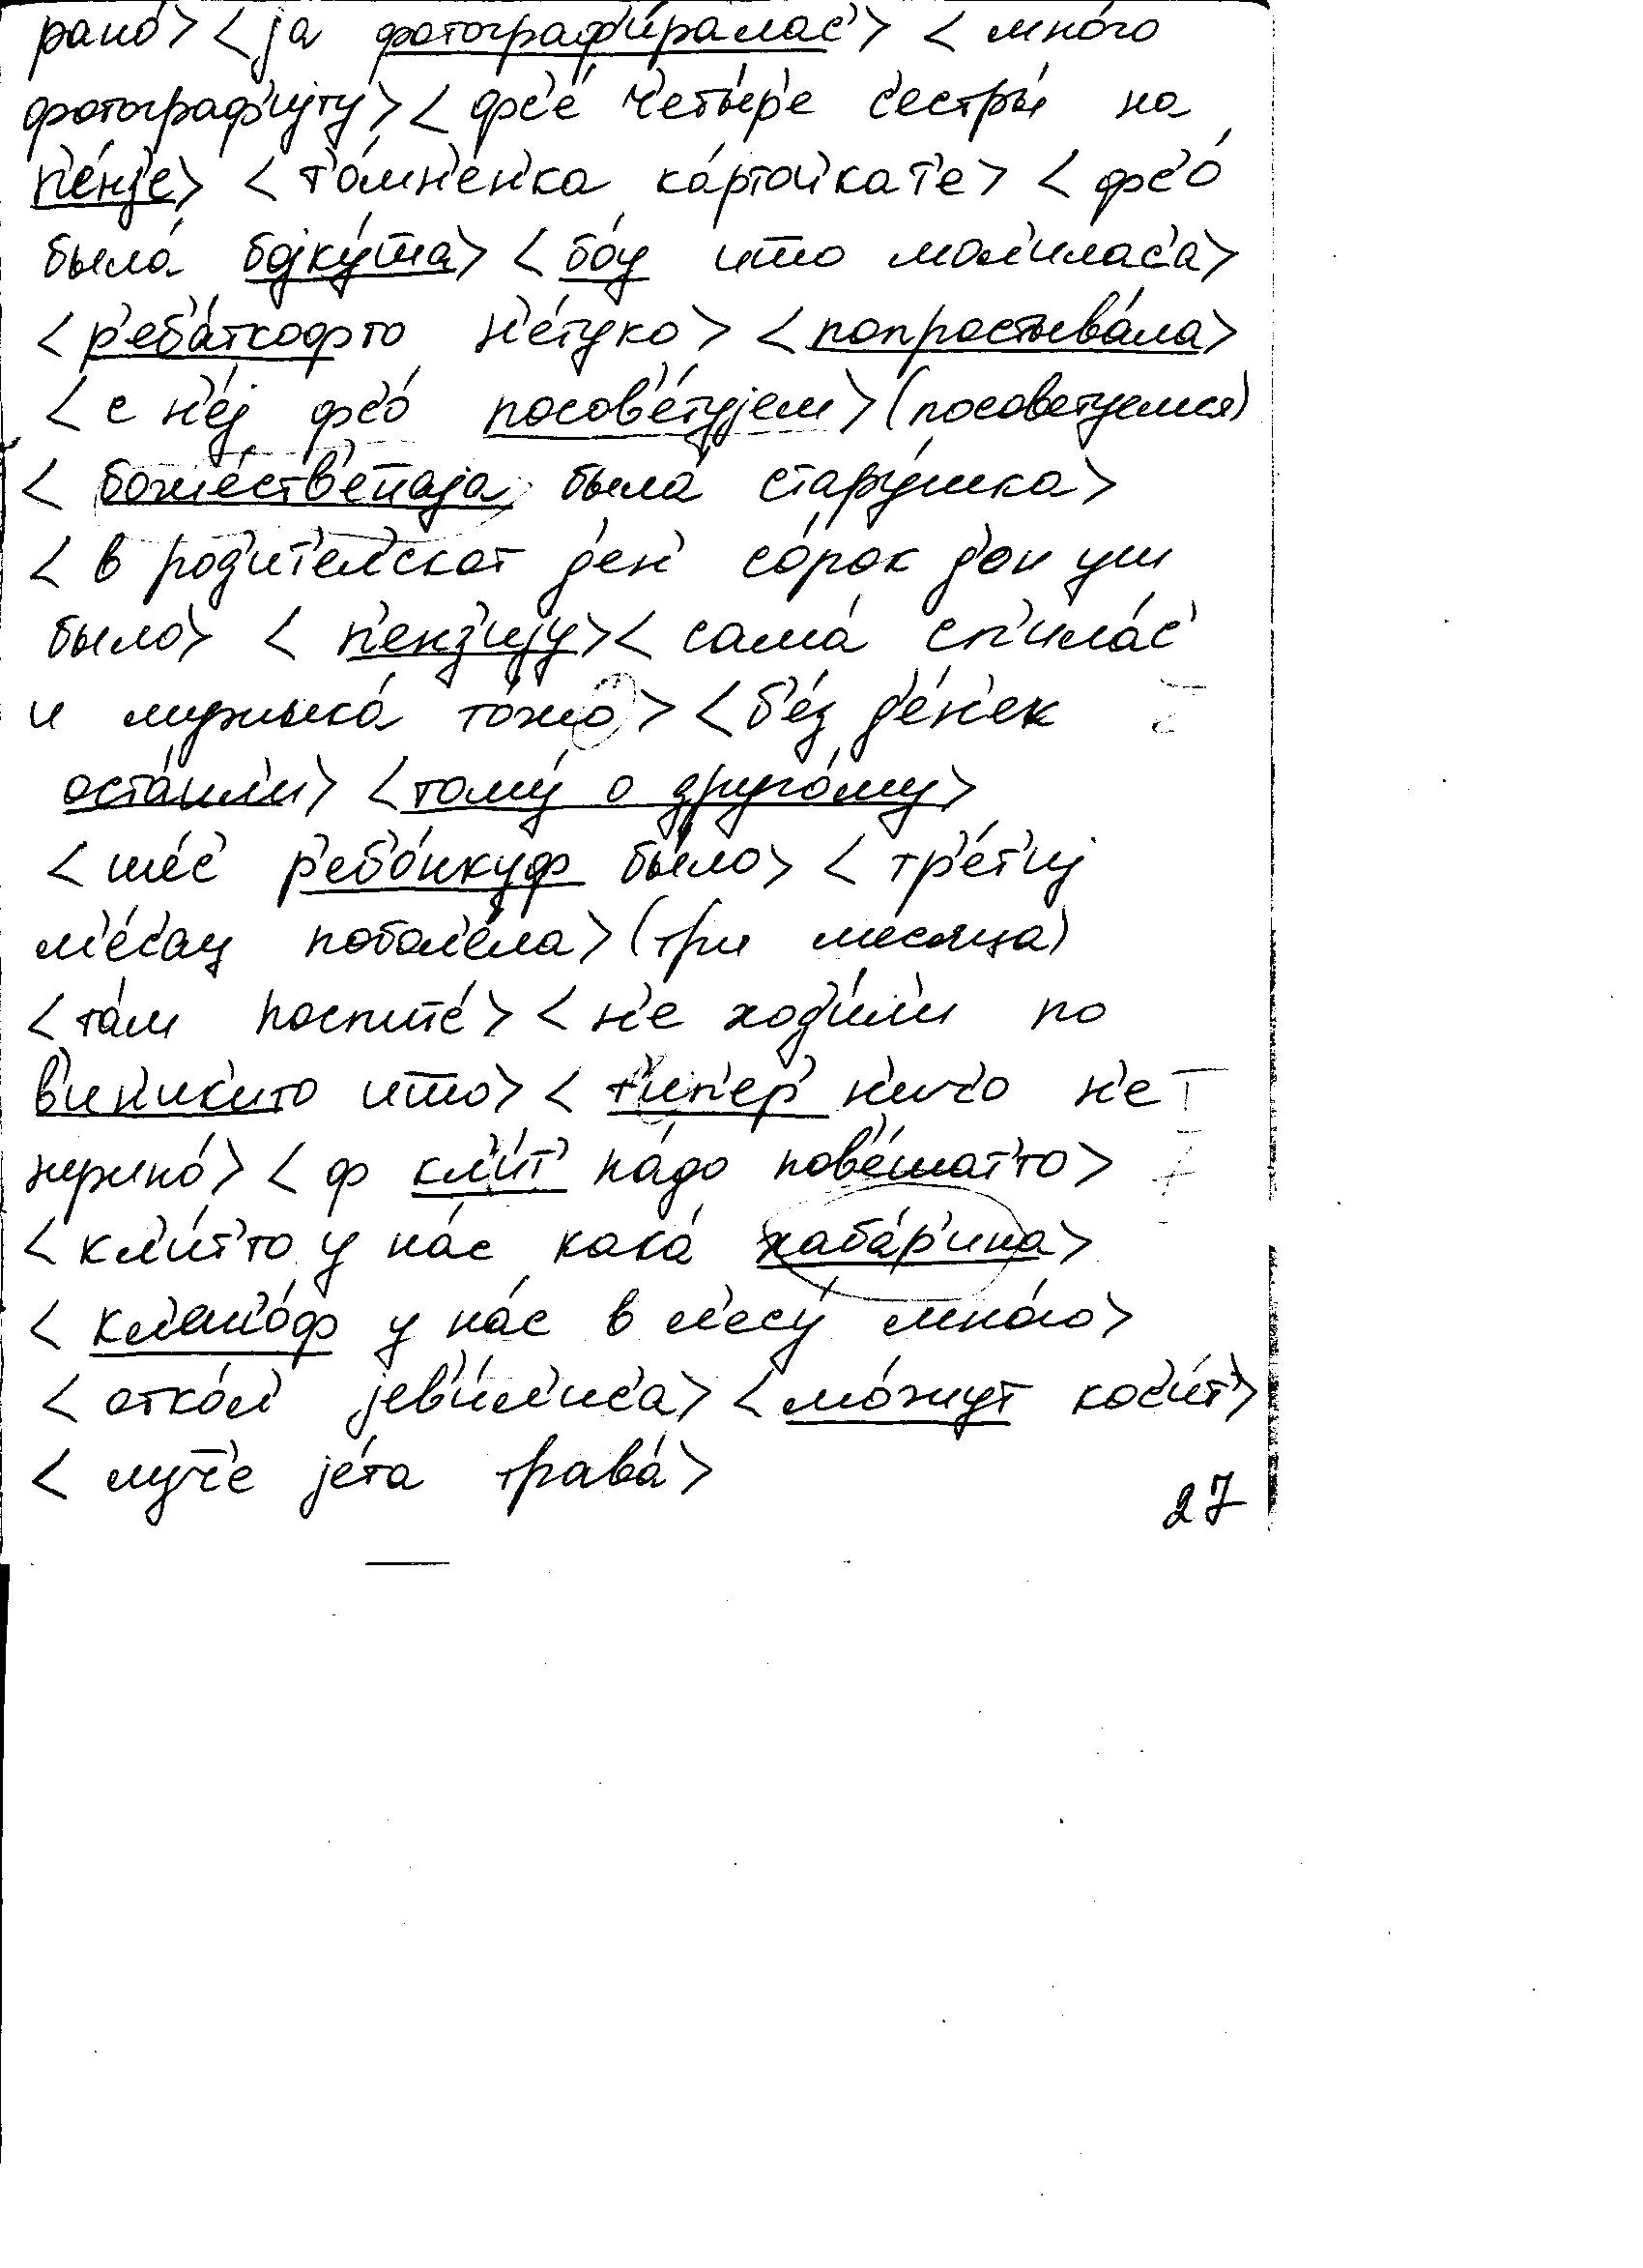 рано́> <jа фотограф'и́ралас'> <мно́го
фотограф'иjту> <фс'е́ ч'еты́р'е с'естры́ на
п'е́нз'е> <т'о́мн'ен'ка ка́рточ'кат'е> <фс'о́
была́ боjку́шша> <бо́у што мол'илас'а>
<р'еб'а́ткофто н'е́туко> <попростыва́ла>
<с н'е́j фс'о́ посов'е́туjем> (посоветуемся)
<боже́ств'енаjа была́ стару́шка>
<в род'ит'ел'скат д'ен' со́рок д'он уш
было> <п'енз'иjу> <сама́ сп'ила́с'
и мужыка́ то́жо> <б'е́з д'е́н'ек
оста́л'и> <тому́ о друго́му>
<ше́с' р'еб'о́нкуф бы́ло> <тр'е́т'иj
м'е́с'ац побол'е́ла> (три месяца)
<та́м поспит'е́> <н'е ход'и́л'и по
в'ин'ик'ито што> <т'ип'ер' н'ич'о н'е
нужно́> <ф кл'и́т' на́до пов'е́шат'то>
<кл'и́т'то у на́с кака́ хаба́р'ина>
<кл'ешч'о́ф у на́с в л'есу́ мно́го>
<отко́л' jев'и́л'ис'а> <мо́жут кос'и́т'>
<луч'е jе́та трава́>
27